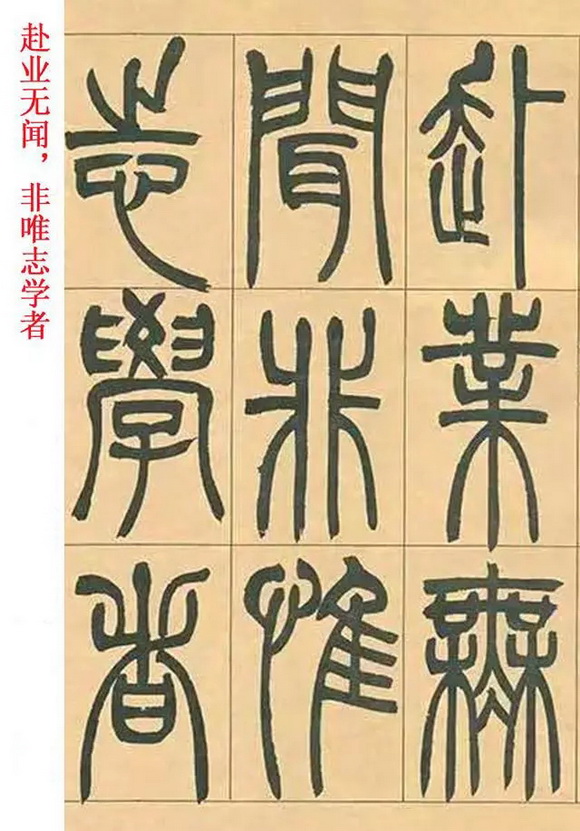 赴业无闻，非唯志学者
赴業無
聞非惟
志學者